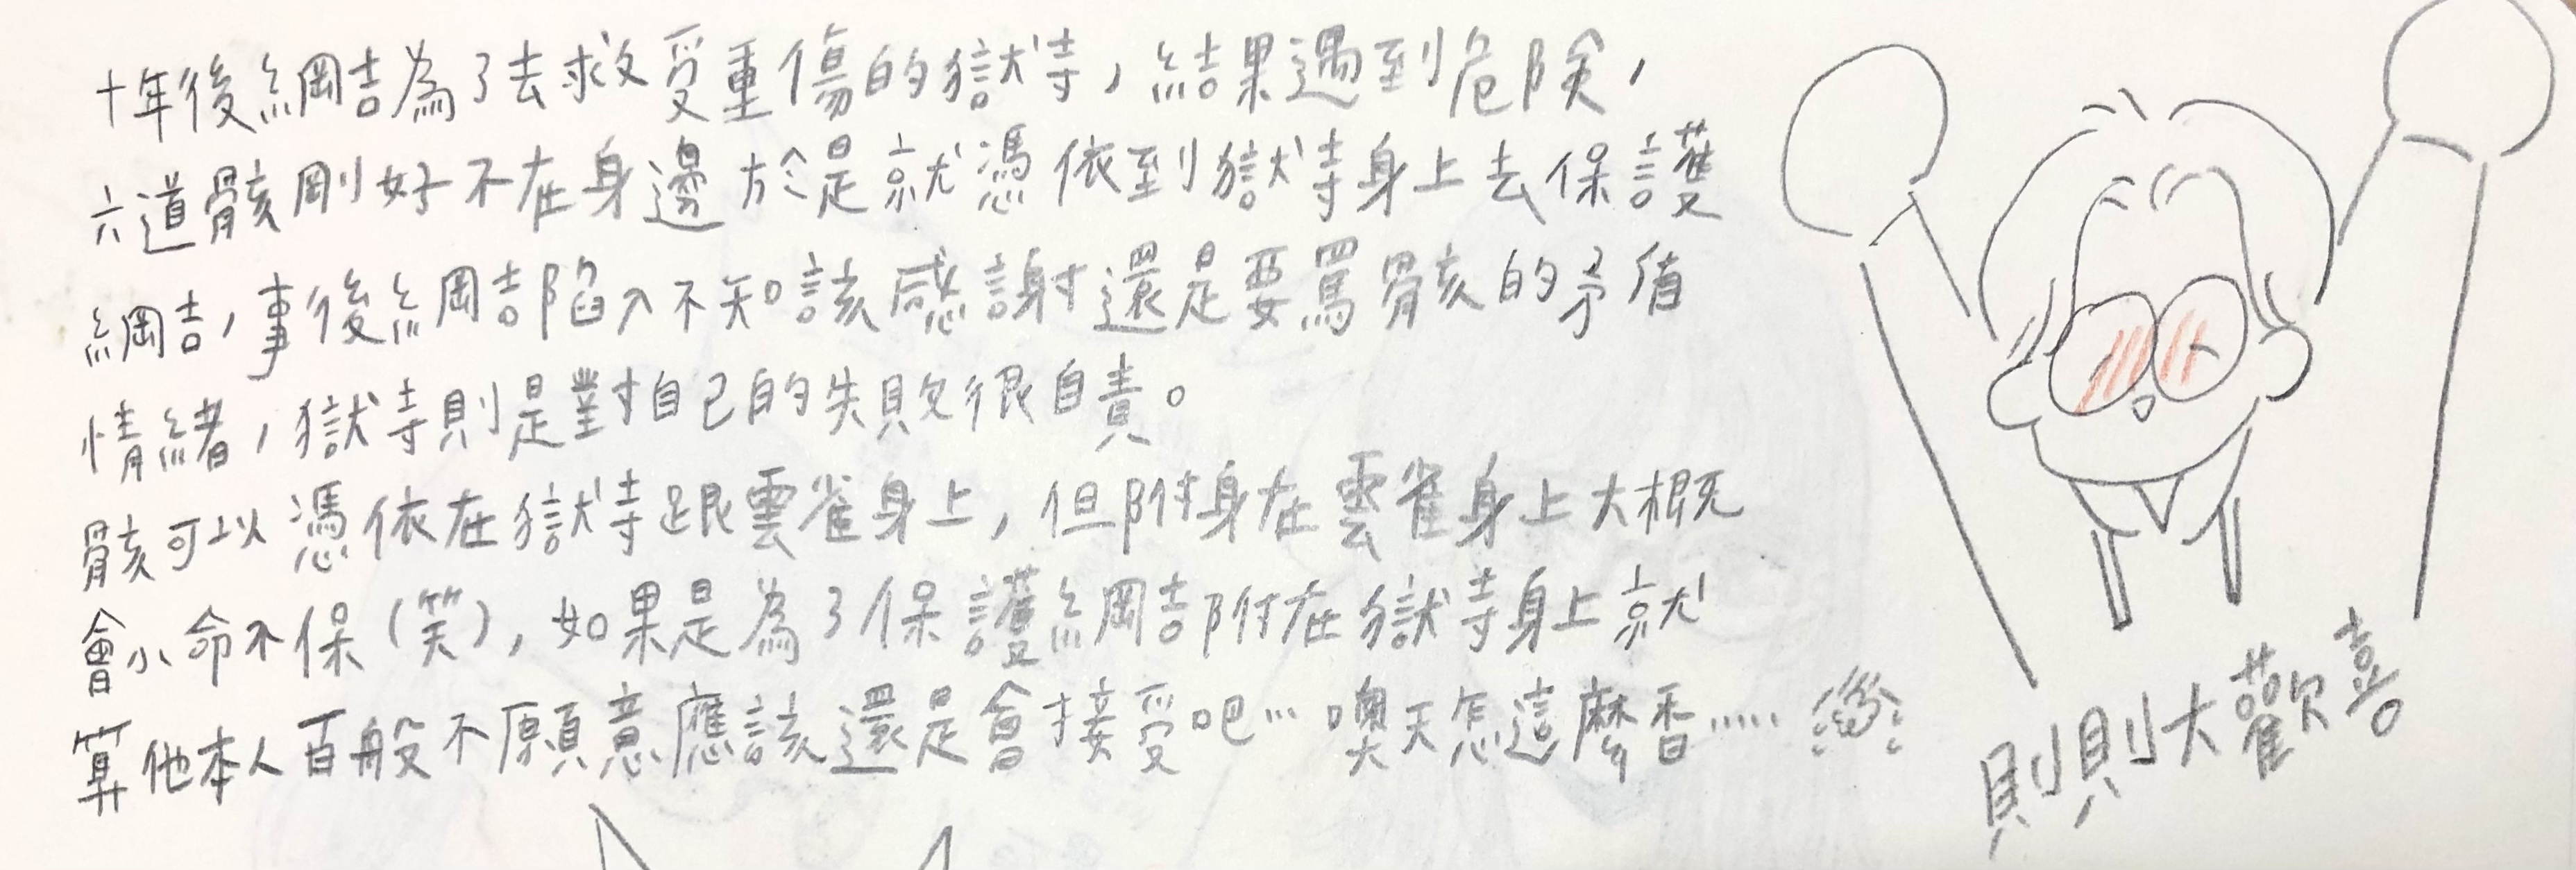 十年後綱吉為了去救受重傷的獄寺，結果遇到危険，
六道骸剛好不在身邊於是就憑依到獄寺身上去保護
綱吉，事後綱吉陷入不知該感謝還是要罵骸的矛盾
情緒，獄寺則是對自己的失敗很自責。
骸可以憑依在獄寺跟雲雀身上，但附身在雲雀身上大概
會小命不保(笑)，如果是為了保護綱吉附在獄寺身上就
算他本人百般不願意應該還是會接受吧…噢天怎這麼香……
則則大歡喜